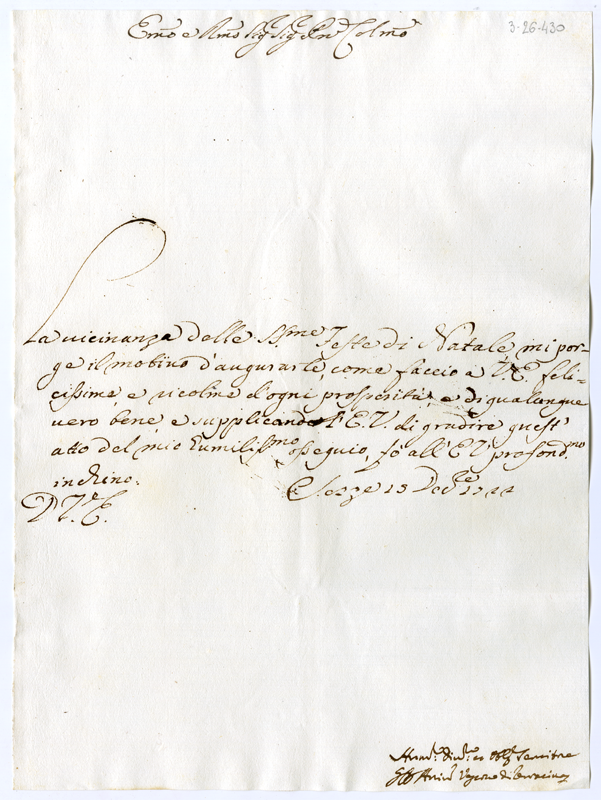 3-26-430
Emo e Rmo Sig Sig Prn Colmo
La vicinanza delle SSme Feste di Natale, mi por-
ge il motivo d'augurarle, come faccio a V.E. feli-
cissime, e ricolme d'ogni prosperità, e di qualunque
vero bene, e supplicando l'E.V. di gradire quest'
atto del mio humilissmo osseguio, fò all'EV profondmo
inchino.
Sezze 15 Dec.e 1744
D V.a E.
Humo Divmo ed Obbmo Servitore